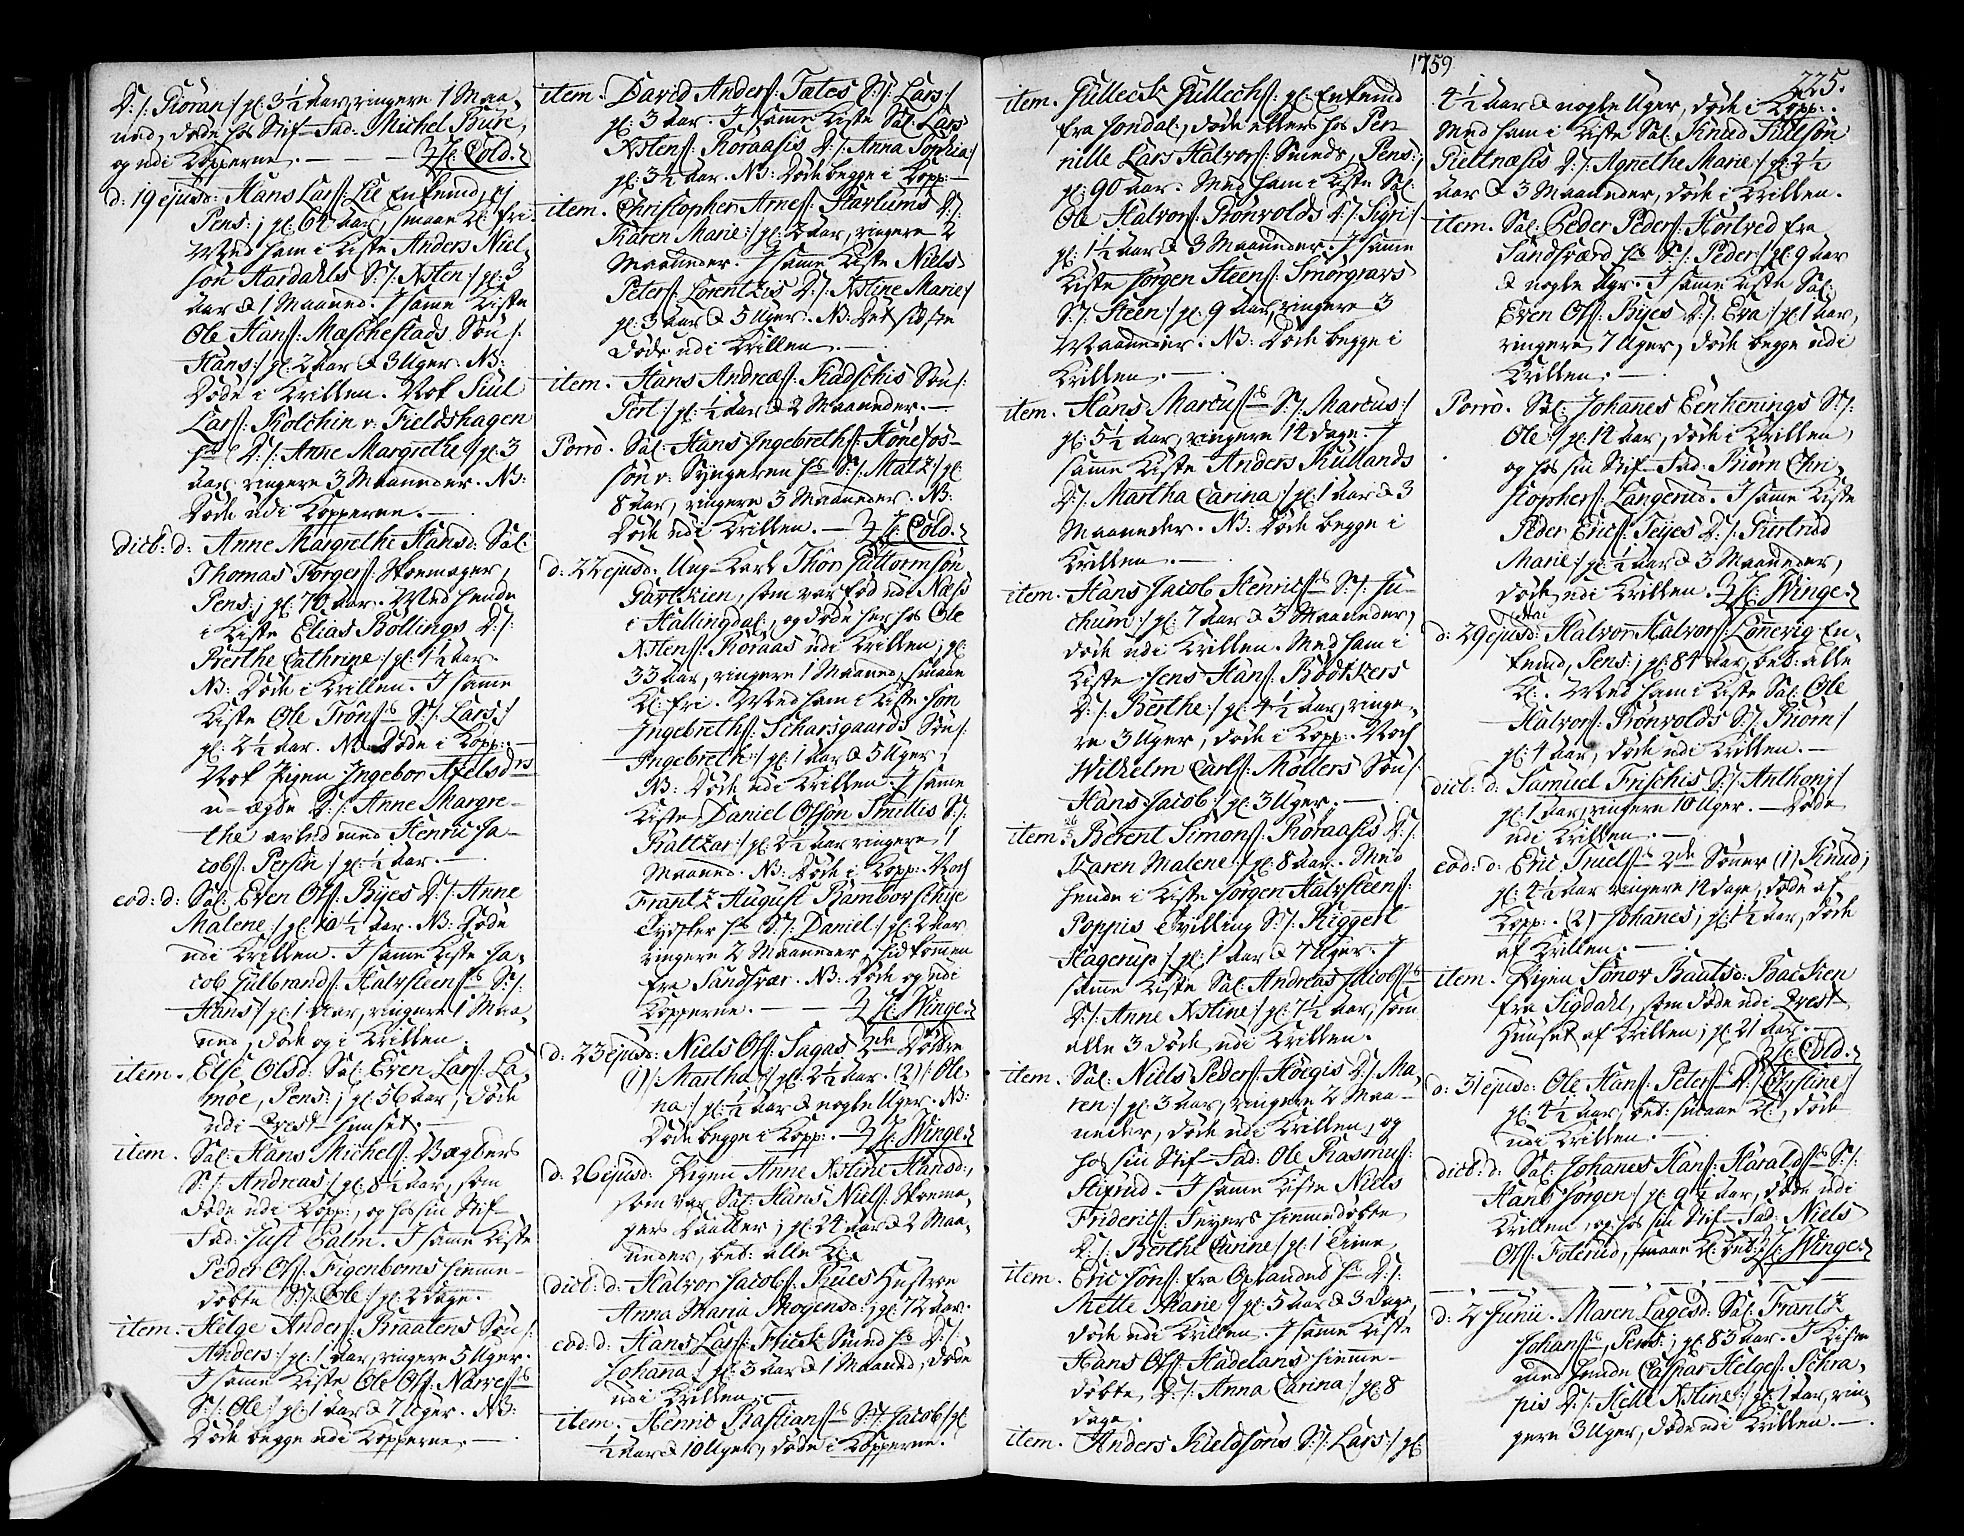 1759
225.
D:/: Giöran:/ gl: 3½ aar, ringere 1 Maa-
ned, döde hos Stif-Fad: Michel Bure,
og udi Kopperne. — — Cold.
d: 19 ejusd: Hans Lars: Lie Enkemd, ej
Pens:; gl: 64 aar, smaae Kl: fri.
Med ham i Kiste Anders Niel-
sön Aardahls S:/: Xsten:/ gl: 3
aar & 1 Maaned. I samme Kiste
Ole Hans: Maschestads Sön/:
Hans:/ gl: 2 aar & 3 Uger. NB:
Döde i Krillen. Nok Siul
Lars: Kolchin v: Fieldshagen
D:/: Anne Margrethe:/ gl: 3
aar ringere 3 Maaneder. NB:
Döde udi Kopperne. —
dict: d: Anne Margrethe Hansd: Sal:
Thomas Torgers: Skoemager,
Pens:; gl: 70 aar. Med hende
i Kiste Elias Bollings D:/:
Berthe Cathrine:/ gl: 1½ aar.
NB: Döde i Krillen. I samme
Kiste Ole Tröns: S:/: Lars:/
gl: 2½ aar. NB: Döde i Kopp: —
Nok Pigen Ingebor Axelsd:
u-ægte D:/: Anne Margre-
the avled med Henric Ja-
cobs: Persin:/ gl: ½ aar. —
eod: d: Sal: Even Ols: Byes D:/: Anne
Malene:/ gl: 10½ aar. NB: Döde
udi Krillen. I samme Kiste Ja-
cob Gulbrands: Halvsteens: S:/:
Hans:/ gl: 1 aar, ringere 1 Maa-
ned, döde og i Krillen.
item. Else Olsd: Sal: Even Lars: La-
moe, Pens:; gl: 56 aar, döde
udi Qvest-Huuset. —
item. Sal: Hans Michels: Vægters
S:/: Andreas:/ gl: 8½ aar, som
döde udi Kopp:, og hos sin Stif-
Fad: Just Calm. I samme Kiste
Peder Ols: Figenboms hiemme-
döbte S:/: Ole:/ gl: 2 dage.
item. Helge Anders: Braatens Sön/:
Anders:/ gl: 1 aar, ringere 5 Uger.
I samme Kiste Ole Ols: Narves:
S:/: Ole:/ gl: 1 aar & 7 Uger. NB:
Döde begge udi Kopperne. —
item. David Anders: Tates S:/: Lars:/
gl: 3 aar. I samme Kiste Sal: Lars
Xstens: Roraasis D:/: Anna Sophia:/
gl: 3½ aar. NB: Döde begge i Kopp: —
item. Christopher Arnes: Skarlums D:/:
Karen Marie:/ gl: 2 aar, ringere 2
Maaneder. I samme Kiste Niels
Peters: Lorentzis D:/: Xstine Marie:/
gl: 3 aar & 5 Uger. NB: Det sidste
döde udi Krillen. —
item. Hans Andreæs: Kadschis Sön/:
Perl:/ gl: ½ aar & 2 Maaneder. —
Porro. Sal: Hans Ingebreths: Hönefos-
sön v: Syngeren S:/: Matz:/ gl:
8 aar, ringere 3 Maaneder. NB:
Döde udi Krillen. — Cold.
d: 22 ejusd: Ung-Karl Thor Guttormsön
Gartzien, som var föd udi Næss
i Hallingdal, og döde her hos Ole
Xstens: Roraas udi Krillen; gl:
33 aar, ringere 1 Maaned, smaae
Kl: fri. Med ham i Kiste Jon
Ingebreths: Scharsgaards Sön/:
Ingebreth:/ gl: 1 aar & 5 Uger,
NB: Döde udi Krillen. I samme
Kiste Daniel Olsön Smillis S:/:
Baltzar:/ gl: 2½ aar ringere 1
Maaned. NB: Döde i Kopp: Noch
Frantz August Bamborschye
Tydsker S:/: Daniel:/ gl: 2 aar
ringere 2 Maaneder, hidkommen
fra Sandsvær. NB: Döde og udi
Kopperne. — — Winge.
d: 23 ejusd: Niels Ols: Sagas 2de Döttre
(1)/: Martha:/ gl: 2½ aar. (2)/: Ole-
na:/ gl: ½ aar & nogle Uger. NB:
Döde begge i Kopp: — Winge.
d: 26 ejusd: Pigen Anne Xstine Hansd:,
som var Sal: Hans Niels: Skoema-
gers Daatter; gl: 24 aar & 2 Maa-
neder, bet: alle Kl:
dict: d: Halvor Jacobs: Rues Hustroe
Anna Maria Mogensd:; gl: 72 aar.
eod: d: Hans Lars: Frick Smed D:/:
Johanna:/ gl: 3 aar & 1 Maaned, döde
udi Krillen. —
item. Henric Bastians: S:/: Jacob:/ gl:
½ aar & 10 Uger, döde i Kopperne.
item. Gulleck Gullechs: gl: Enkemd
fra Jondal, döde ellers hos Per-
nille Lars Halvors: Smeds, Pens:;
gl: 90 aar. Med ham i Kiste Sal:
Ole Halvors: Brönvolds D:/: Sigri:/
gl: 1½ aar & 3 Maaneder. I samme
Kiste Jörgen Steens: Smörgravs
S:/: Steen:/ gl: 9 aar, ringere 3
Maaneder. NB: Döde begge i
Krillen. —
item. Hans Marcus: S:/: Marcus:/
gl: 5½ aar, ringere 14 dage. I
samme Kiste Anders Rullands
D:/: Martha Carina:/ gl: 1 aar & 3
Maaneder. NB: Döde begge i
Krillen. —
item. Hans Jacob Henrics: S:/: Ju-
chum:/ gl: 7 aar & 3 Maaneder,
döde udi Krillen. Med ham i
Kiste Jens Hans: Bödtkers
D:/: Berthe:/ gl: 4½ aar, ringe-
re 3 Uger, döde i Kopp: Noch
Wilhelm Carls: Möllers Sön/:
Hans Jacob:/ gl: 3 Uger. —
item. 26/5 Berent Simons: Roraasis D:/:
Karen Malene:/ gl: 8 aar. Med
hende i Kiste Jörgen Halvsteens:
Poppis Tvilling S:/: Riggert
Hagerup:/ gl: 1 aar & 7 Uger. I
samme Kiste Sal: Andreas Jacobs:
D:/: Anne Xstine:/ gl: 7½ aar, som
alle 3 döde udi Krillen.
item. Sal: Niels Peders: Höegis D:/: Ma-
ren:/ gl: 3 aar, ringere 2 Maa-
neder, döde udi Krillen, og
hos sin Stif-Fad: Ole Rasmus:
Stifrud. I samme Kiste Niels
Friderics: Seyers hiemmedöbte
D:/: Berthe Carine:/ gl: 1 Time.
item. Eric Jöns: fra Oplandet D:/:
Mette Marie:/ gl: 5 aar & 3 dage,
döde udi Krillen. I samme Kiste
Hans Ols: Hadelans hiemme-
döbte D:/: Anna Carina:/ gl: 8
dage.
item. Anders Kieldsöns S:/: Lars:/ gl:
4½ aar & nogle Uger, döde i Kopp:.
Med ham i Kiste Sal: Knud Tillesön
Piettnæsis D:/: Agnethe Marie:/ gl: 2½
aar & 3 Maaneder, döde i Krillen.
item. Sal: Peder Peders: Hortved fra
Sandsværd S:/: Peder:/ gl: 9 aar
& nogle Ugr. I samme Kiste Sal:
Even Ols: Byes D:/: Eva:/ gl: 1 aar,
ringere 7 Uger, döde begge udi
Krillen. —
Porro. Sal: Johannes Eenkenings S:/:
Ole:/ gl: 14 aar, döde i Krillen,
og hos sin Stif-Fad: Biörn Chri-
stophers: Langerud. I samme Kiste
Peder Erics: Teyes D:/: Giertrud
Marie:/ gl: ½ aar & 3 Maaneder,
döde udi Krillen. Winge.
d: 29 ejusd: Halvor Halvors: Lonnevig En-
kemd, Pens:; gl: 84 aar, bet: alle
Kl:. Med ham i Kiste Sal: Ole
Halvors: Brönvolds S:/: Biörn:/
gl: 4 aar, döde udi Krillen. —
dict: d: Samuel Frischis S:/: Anthonj:/
gl: 1 aar, ringere 10 Uger. — Döde
udi Krillen. —
eod: d: Eric Juels: 2de Sönner (1) Knud;
gl: 4½ aar ringere 14 dage, döde af
Kopp:. (2) Johannes; gl: 1½ aar, döde
af Krillen. —
item. Pigen Sönov Bautsd: Backien
fra Sigdahl, som döde udi Qvest-
Huuset af Krillen; gl: 21 aar. —
Cold.
d: 31 ejusd: Ole Hans: Peters: D:/: Chrstine:/
gl: 4½ aar, bet: smaae Kl:, döde
udi Krillen. —
dict: d: Sal: Johanes Hans: Haralds: S:/:
Hans Jörgen:/ gl: 9½ aar, döde udi
Krillen, og hos sin Stif-Fad: Niels
Ols: Folerud, smaae Kl: bet: Winge.
d: 2 Junii. Maren Lagesd: Sal: Frantz
Johans:, Pens:; gl: 83 aar. I Kiste
med hende Caspar Helges: Schra-
pis D:/: Helle Xstine:/ gl: 1 aar, rin-
gere 3 Uger, döde udi Krillen. —